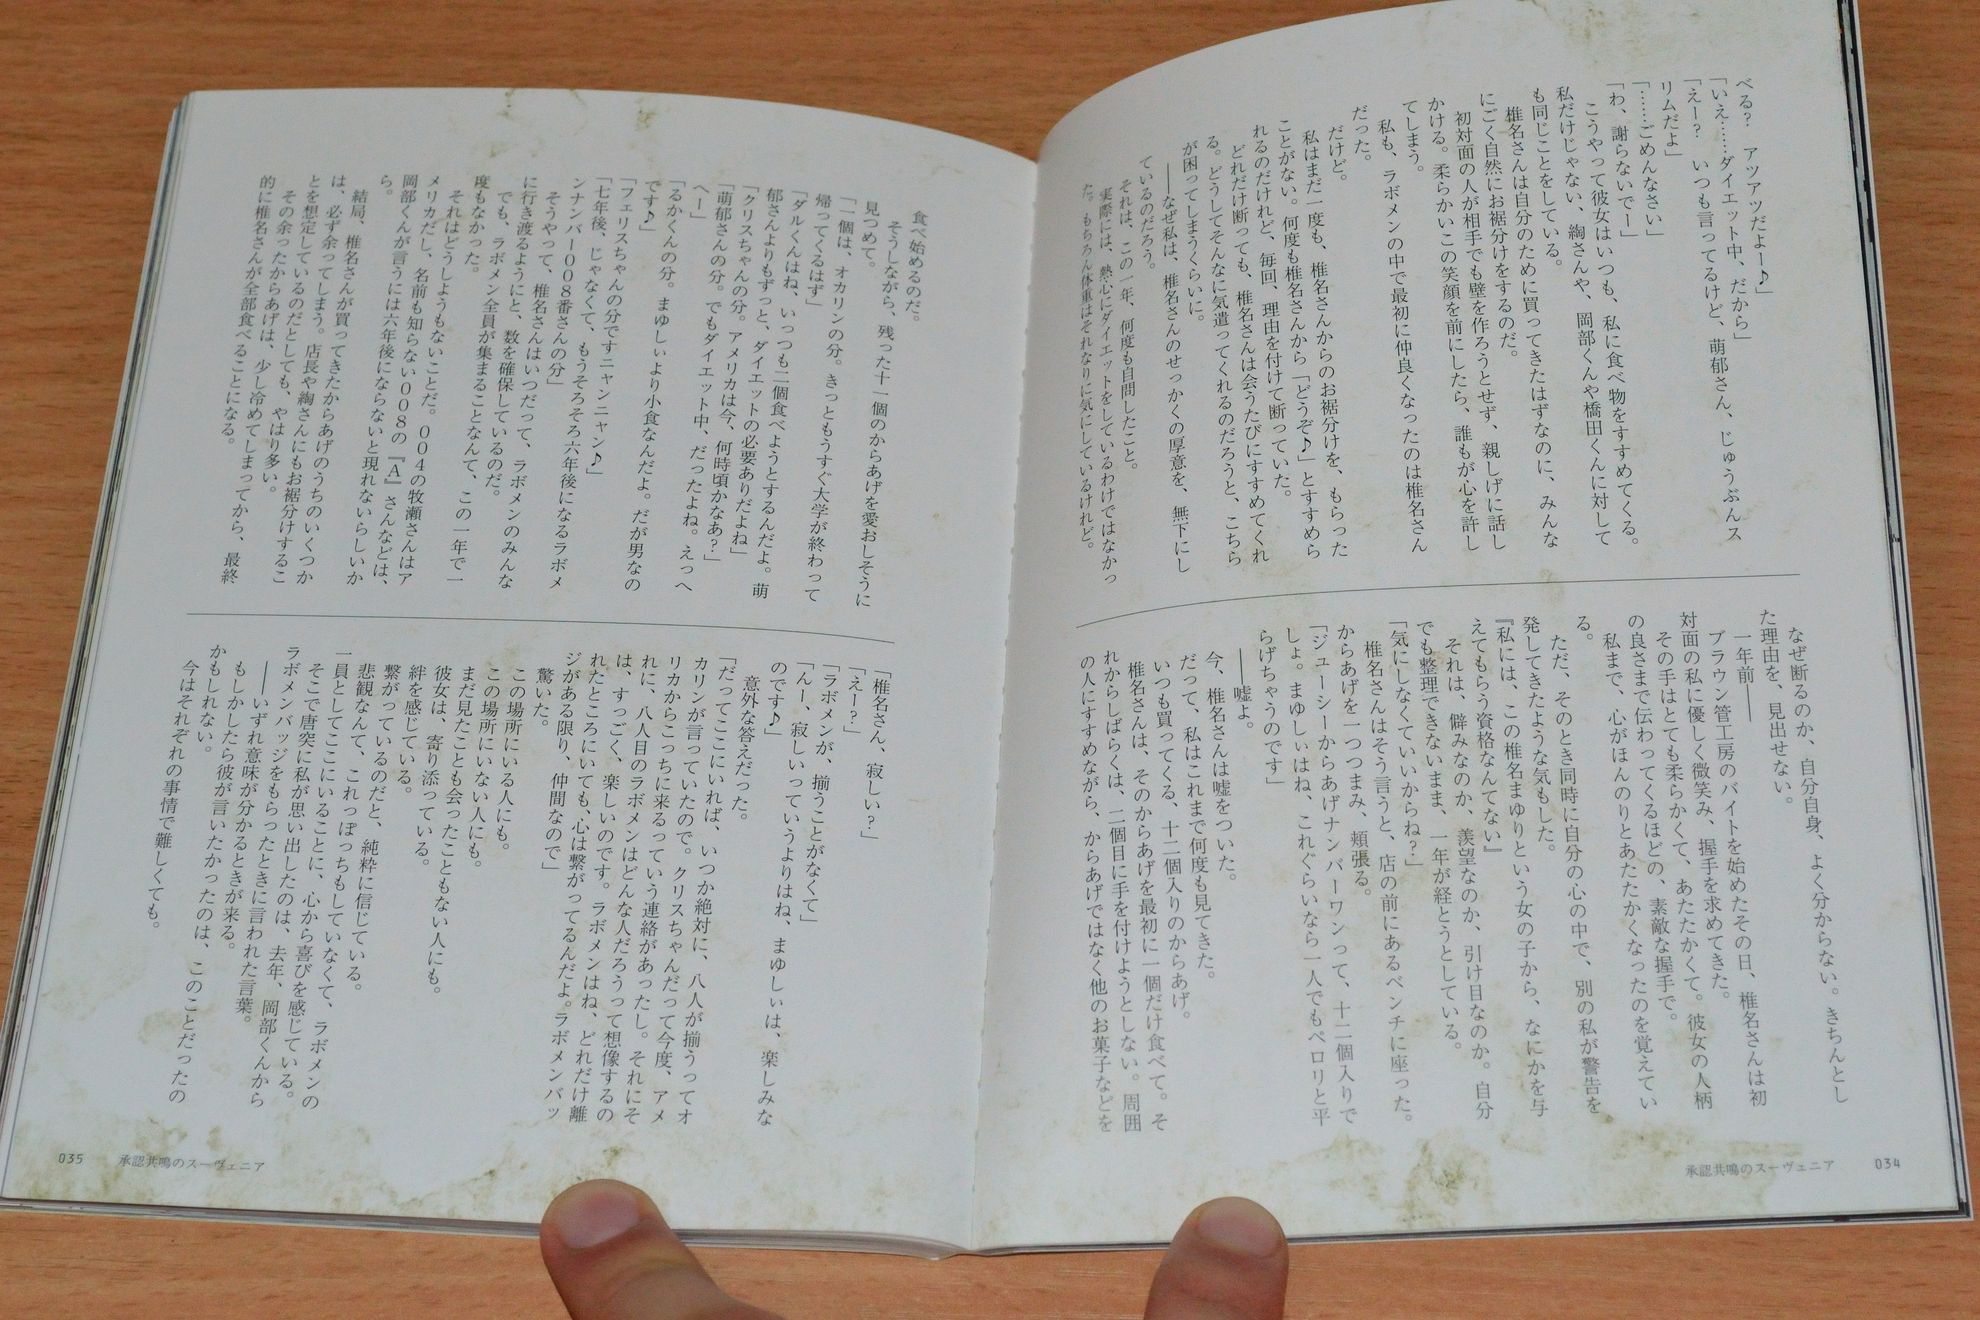 べる？　アツアツだよー♪」
「いえ……ダイエット中、だから」
「えー？　いつも言ってるけど、萌郁さん、じゅうぶんス
リムだよ」
「……ごめんなさい」
「わ、謝らないでー」
こうやって彼女はいつも、私に食べ物をすすめてくる。
私だけじゃない、綯さんや、岡部くんや橋田くんに対して
も同じことをしている。
椎名さんは自分のために買ってきたはずなのに、みんな
にごく自然にお裾分けをするのだ。
初対面の人が相手でも壁を作ろうとせず、親しげに話し
かける。柔らかいこの笑顔を前にしたら、誰もが心を許し
てしまう。
私も、ラボメンの中で最初に仲良くなったのは椎名さん
だった。
だけど。
私はまだ一度も、椎名さんからのお裾分けを、もらった
ことがない。何度も椎名さんから「どうぞ♪」とすすめら
れるのだけれど、毎回、理由を付けて断っていた。
どれだけ断っても、椎名さんは会うたびにすすめてくれ
る。どうしてそんなに気遣ってくれるのだろうと、こちら
が困ってしまうくらいに。
――なぜ私は、椎名さんのせっかくの厚意を、無下にし
ているのだろう。
それは、この一年、何度も自問したこと。
実際には、熱心にダイエットをしているわけではなかっ
た。もちろん体重はそれなりに気にしているけれど。
なぜ断るのか、自分自身、よく分からない。きちんとし
た理由を、見出せない。
一年前――
ブラウン管工房のバイトを始めたその日、椎名さんは初
対面の私に優しく微笑み、握手を求めてきた。
その手はとても柔らかくて、あたたかくて。彼女の人柄
の良さまで伝わってくるほどの、素敵な握手で。
私まで、心がほんのりとあたたかくなったのを覚えてい
る。
ただ、そのとき同時に自分の心の中で、別の私が警告を
発してきたような気もした。
『私には、この椎名まゆりという女の子から、なにかを与
えてもらう資格なんてない』
それは、僻みなのか、羨望なのか、引け目なのか。自分
でも整理できないまま、一年が経とうとしている。
「気にしなくていいからね？」
椎名さんはそう言うと、店の前にあるベンチに座った。
からあげを一つつまみ、頬張る。
「ジューシーからあげナンバーワンって、十二個入りで
しょ。まゆしぃはね、これぐらいなら一人でもペロリと平
らげちゃうのです」
――嘘よ。
今、椎名さんは嘘をついた。
だって、私はこれまで何度も見てきた。
いつも買ってくる、十二個入りのからあげ。
椎名さんは、そのからあげを最初に一個だけ食べて。そ
れからしばらくは、二個目に手を付けようとしない。周囲
の人にすすめながら、からあげではなく他のお菓子などを
承認共鳴のスーヴェニア　034
食べ始めるのだ。
そうしながら、残った十一個のからあげを愛おしそうに
見つめて。
「一個は、オカリンの分。きっともうすぐ大学が終わって
帰ってくるはず」
「ダルくんはね、いっつも二個食べようとするんだよ。萌
郁さんよりもずっと、ダイエットの必要ありだよね」
「クリスちゃんの分。アメリカは今、何時頃かなあ？」
「萌郁さんの分。でもダイエット中、だったよね。えっへ
へー」
「るかくんの分。まゆしぃより小食なんだよ。だが男なの
です♪」
「フェリスちゃんの分ですニャンニャン♪」
「七年後、じゃなくて、もうそろそろ六年後になるラボメ
ンナンバー００８番さんの分」
そうやって、椎名さんはいつだって、ラボメンのみんな
に行き渡るようにと、数を確保しているのだ。
でも、ラボメン全員が集まることなんて、この一年で一
度もなかった。
それはどうしようもないことだ。００４の牧瀬さんはア
メリカだし、名前も知らない００８の『Ａ』さんなどは、
岡部くんが言うには六年後にならないと現れないらしいか
ら。
結局、椎名さんが買ってきたからあげのうちのいくつか
は、必ず余ってしまう。店長や綯さんにもお裾分けするこ
とを想定しているのだとしても、やはり多い。
その余ったからあげは、少し冷めてしまってから、最終
的に椎名さんが全部食べることになる。
「椎名さん、寂しい？」
「えー？」
「ラボメンが、揃うことがなくて」
「んー、寂しいっていうよりはね、まゆしぃは、楽しみな
のです♪」
意外な答えだった。
「だってここにいれば、いつか絶対に、八人が揃うってオ
カリンが言っていたので。クリスちゃんだって今度、アメ
リカからこっちに来るっていう連絡があったし。それにそ
れに、八人目のラボメンはどんな人だろうって想像するの
は、すっごく、楽しいのです。ラボメンはね、どれだけ離
れたところにいても、心は繋がってるんだよ。ラボメンバッ
ジがある限り、仲間なので」
驚いた。
この場所にいる人にも。
この場所にいない人にも。
まだ見たことも会ったこともない人にも。
彼女は、寄り添っている。
絆を感じている。
繋がっているのだと、純粋に信じている。
悲観なんて、これっぽっちもしていなくて、ラボメンの
一員としてここにいることに、心から喜びを感じている。
そこで唐突に私が思い出したのは、去年、岡部くんから
ラボメンバッジをもらったときに言われた言葉。
――いずれ意味が分かるときが来る。
もしかしたら彼が言いたかったのは、このことだったの
かもしれない。
今はそれぞれの事情で難しくても。
035　承認共鳴のスーヴェニア